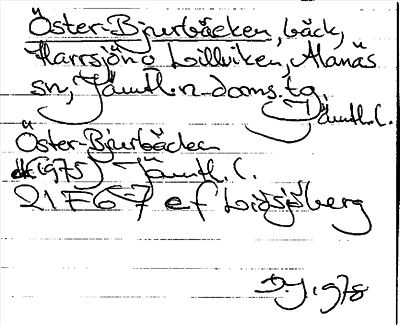 Öster-Bjurbäcken, bäck,
Harrsjön o Lillviken, Alanäs
sn, Jämtl. n. doms. tg,
Jämtl. l.
Öster-Bjurbäcken
(1975) Jämtl. l.
21F6-7 ef Lidsjöberg
1978